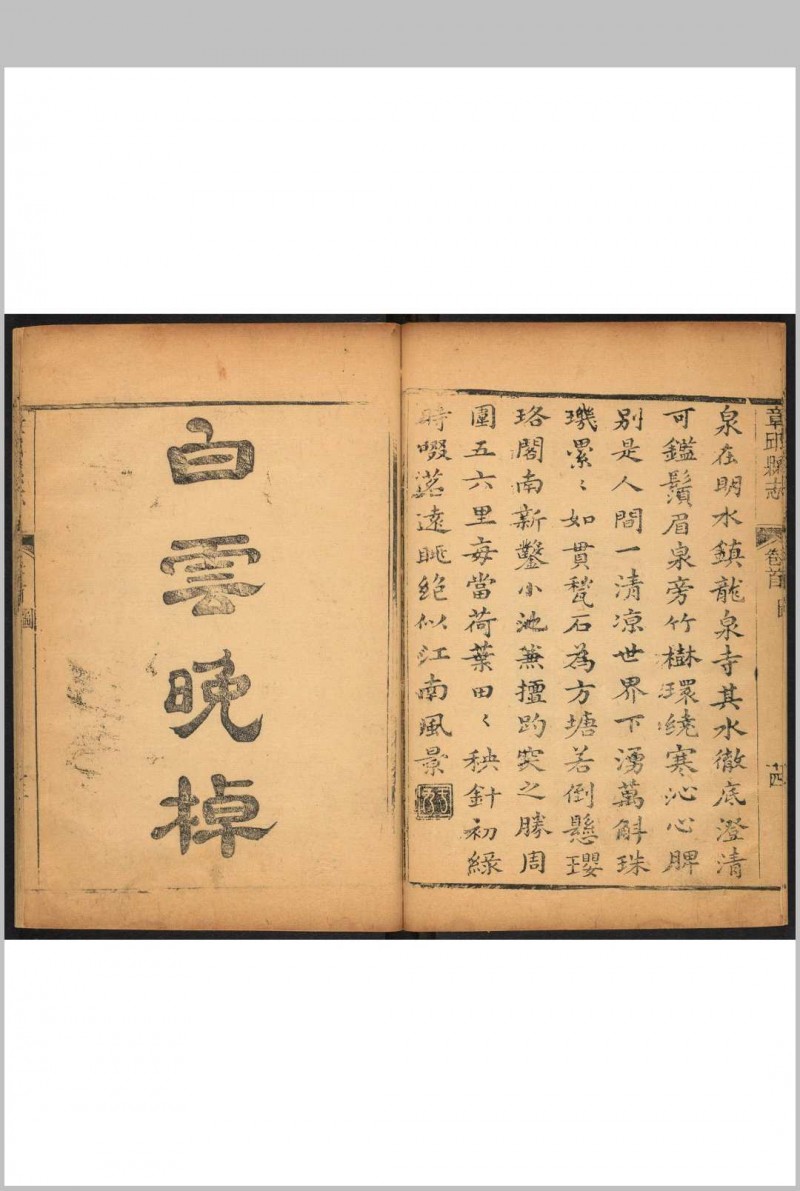 章邱縣志
卷首
圖
十四
泉在明水鎮龍泉寺其水徹底澄清
可鑑鬚眉泉旁竹樹環繞寒沁心脾
別是人間一清凉世界下湧萬斛珠
璣纍〻如貫甃石為方塘若倒懸瓔
珞閣南新鑿小池兼擅趵突之勝周
圍五六里每當荷葉田〻秧針初綠
時啜茗遠眺絶似江南風景
白雲晚棹
圖